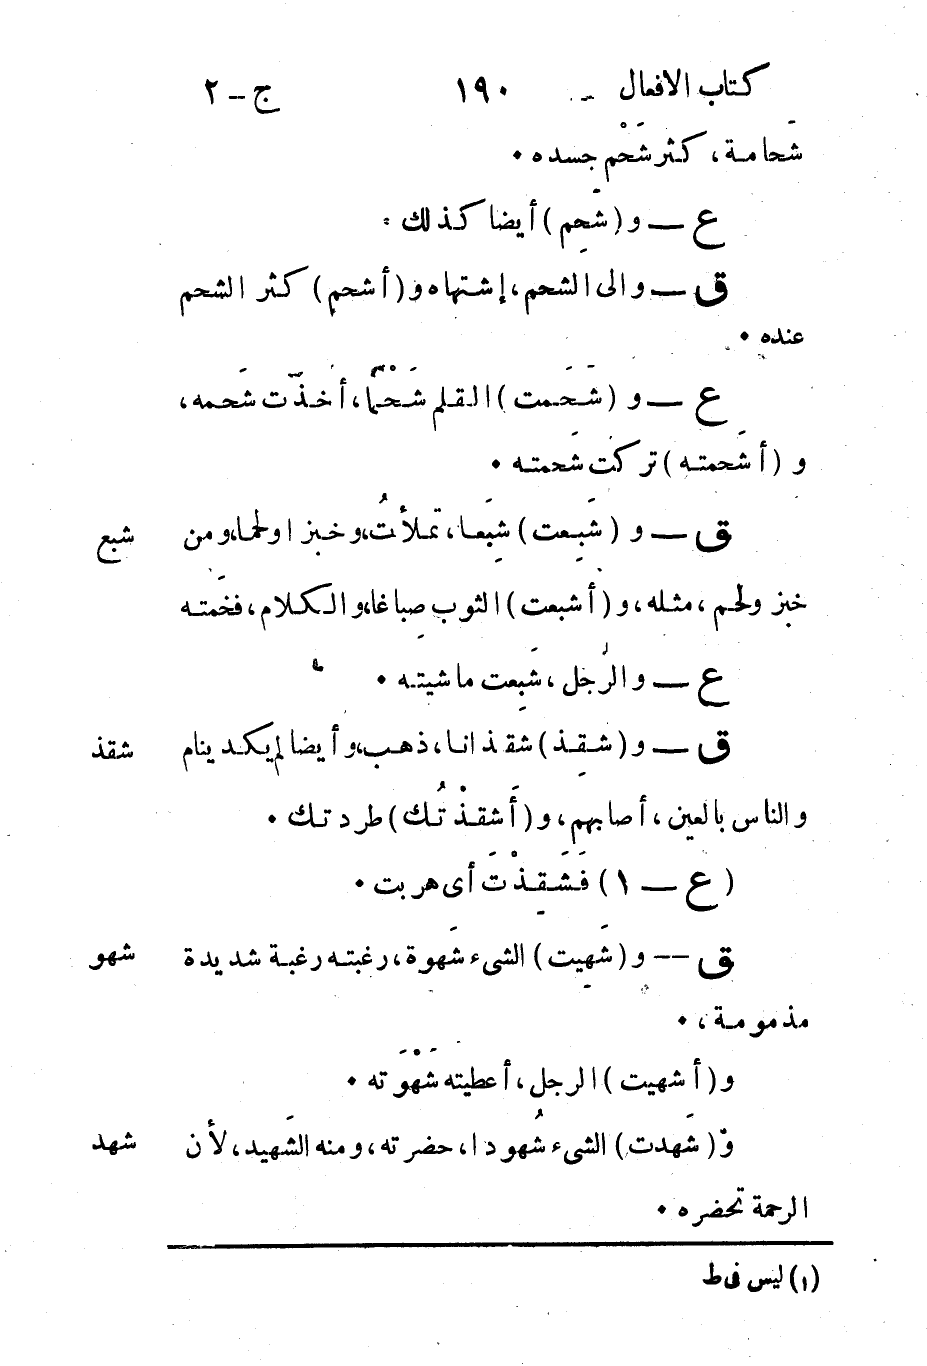 كتاب الافعال ١٩٠ ج – ٢
شَحامة، كثر شَحْم جسده •
ع — و (شَحِم) أيضا كذلك •
ق — والى الشحم، إشتهاه و (أشحم) كثر الشحم
عنده •
ع — و (شَحَمت) القلم شَحْمًا، أخذت شَحمه،
و (أشحمته) تركت شَحمته •
شبع ق — و (شَبِعت) شِبَعا، تملأتُ، وخبزا ولحما، ومن
خبز ولحم، مثله، و (أشبعت) الثوب صِباغا، والكلام، فخّمته
ع — والرُجل، شَبِعت ماشيته •
شقذ ق — و (شقِذ) شقذانا، ذهب، وأيضا لم يكد ينام
والناس بالعين، أصابهم، و (أَشقذْتُك) طردتك •
(ع — ١) فَشَقِذْتَ أى هربت •
شهو ق — و (شَهِيت) الشىء شَهوة، رغبته رغبة شديدة
مذمومة، •
و (أشهيت) الرجل، أعطيته شَهْوَته •
شهد و (شَهدت) الشىء شُهودا، حضرته، ومنه الشَهيد، لأن
الرحمة تحضره •
(١) ليس فى ط